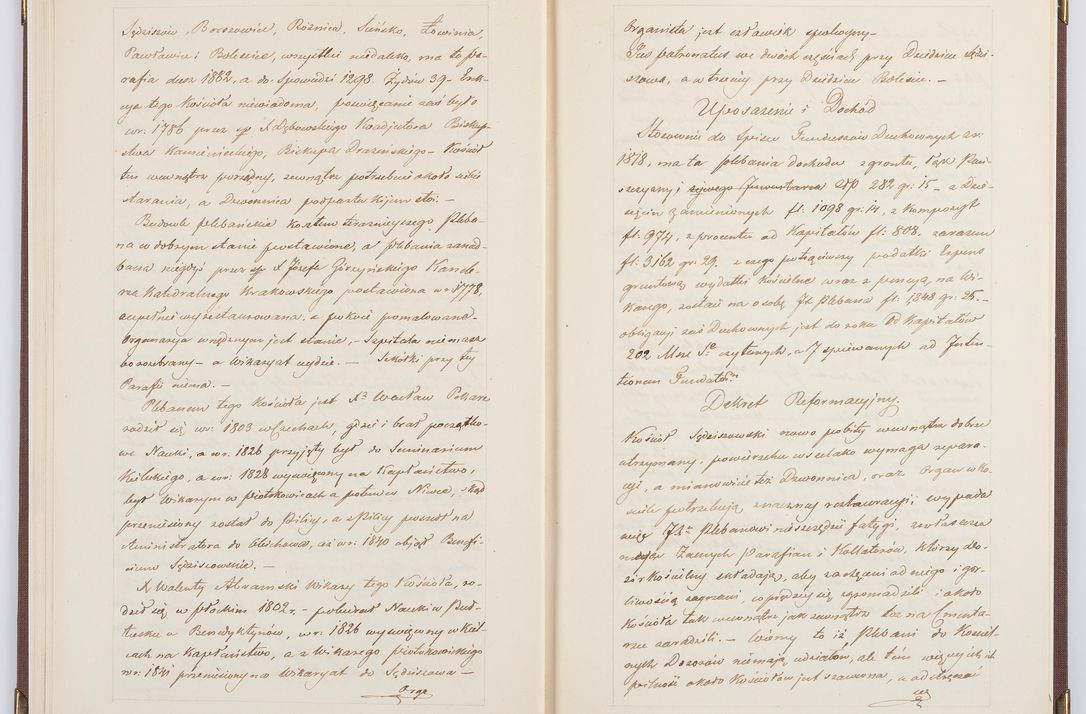 Sędziszów, Boroszowice, Różnica, Sieńsko, Łowinia,
Pawłowice i Bolesice, wszystkie niedaleko, ma ta pa-
rafia dusz 1882, a do Spowiedzi 1298. Żydów 39 – Erek-
cya tego Kościoła niewiadoma, poświęcenie zaś było
w r: 1786 przez śp X Dębowskiego Koadjutora Biskup-
stwa Kamienieckiego, Biskupa – Kościół
ten wewnątrz porządny, zewnątrz potrzebuie około siebie
starania, a Dzwonnica podparta kijem stoi –
Budowle plebańskie kosztem teraźnieyszego Pleba-
na w dobrym stanie postawione, a plebania zanied-
bana niegdyś przez śp X Józefa Górzyńskiego Kano-
nika Katedralnego Krakowskiego postawiona w r: 1778,
zupełnie wyrestaurowana, a pokoie pomalowane –
Organarya w nędznym jest stanie, – Szpitala niemasz
bo rozebrany – a Wikaryat uydzie. – Szkółki przy tey
Parafii niema. –
Plebanem tego Kościoła jest Xdz Wacław
rodził się w r: 1803 w Czechach, gdzie i brał początko-
we Nauki, a w r: 1826 przyjęty był do Seminarium
Kieleckiego, a w r: 1828 wyświęcony na Kapłaństwo,
był Wikarym w Piotrkowicach a potem w Niwce, skąd
przeniesiony został do Pilicy, a z Pilicy poszedł na
Administratora do Olechowa, aż w r: 1840 objął Benefi-
cium Sędziszowskie. –
X Walenty Abramski Wikary tego Kościoła, ro-
dził się w Płockim 1802 r. – pobierał Nauki w Puł-
tusku u Benedyktynów, w r: 1826 wyświęcony w Kiel-
cach na Kapłaństwo, a z Wikarego Piotrkowskiego
w r: 1841 przeniesiony na Wikaryat do Sędziszowa –
Orga
Organista jest człowiek spokoyny –
Jus patronatus we dwóch częściach przy Dziedzicu Sędzi-
szowa, a w trzeciey przy Dziedzicu Bolesic. –
Uposażenie i Dochód
Stosownie do Spisu Funduszów Duchownych z r:
1818, ma ta plebania dochodu z gruntu, łąk
złp 282 gr: 15 – z Dzie-
sięcin zamienionych fl. 1098 gr: 14, z Kompozyt
fl. 974, z procentu od Kapitałów fl: 808. zarazem
fl: 3162 gr: 29. z czego potrąciwszy podatki Expens
gruntową, wydatki Kościelne wraz z pensyą na Wi-
karego, zostaie na osobę JX Plebana fl. 1848 gr: 25 –
obligacyi zaś Duchownych jest do roku Od Kapitałów
202 Msze Ste czytanych, a 7 śpiewanych ad Inten-
tionem Fundatom
Dekret Reformacyjny.
Kościół Sędziszowski nowo pobity wewnątrz dobrze
utrzymany, powierzchu wszelako wymaga repara-
cyi, a mianowicie też Dzwonnica, oraz Organ w Ko-
ściele potrzebują znaczney restauracyi; wypada
więc JXdz Plebanowi nieszczędzić fatygi, zwłaszcza
Zacnych Parafian i Kollatorów, którzy do-
zór Kościelny składają, aby zachęceni od niego i gor-
liwością zagrzani, co prędzey się zgromadzili i około
Kościoła tak wewnątrz jak zewnątrz toż na Cmenta-
rze zaradzili. – Wiemy to iż Plebani do Kościel-
nych Dozorów niemają udziałów, ale tem więcey ich
pilność około Kościołów jest szacowna, a odstręczać